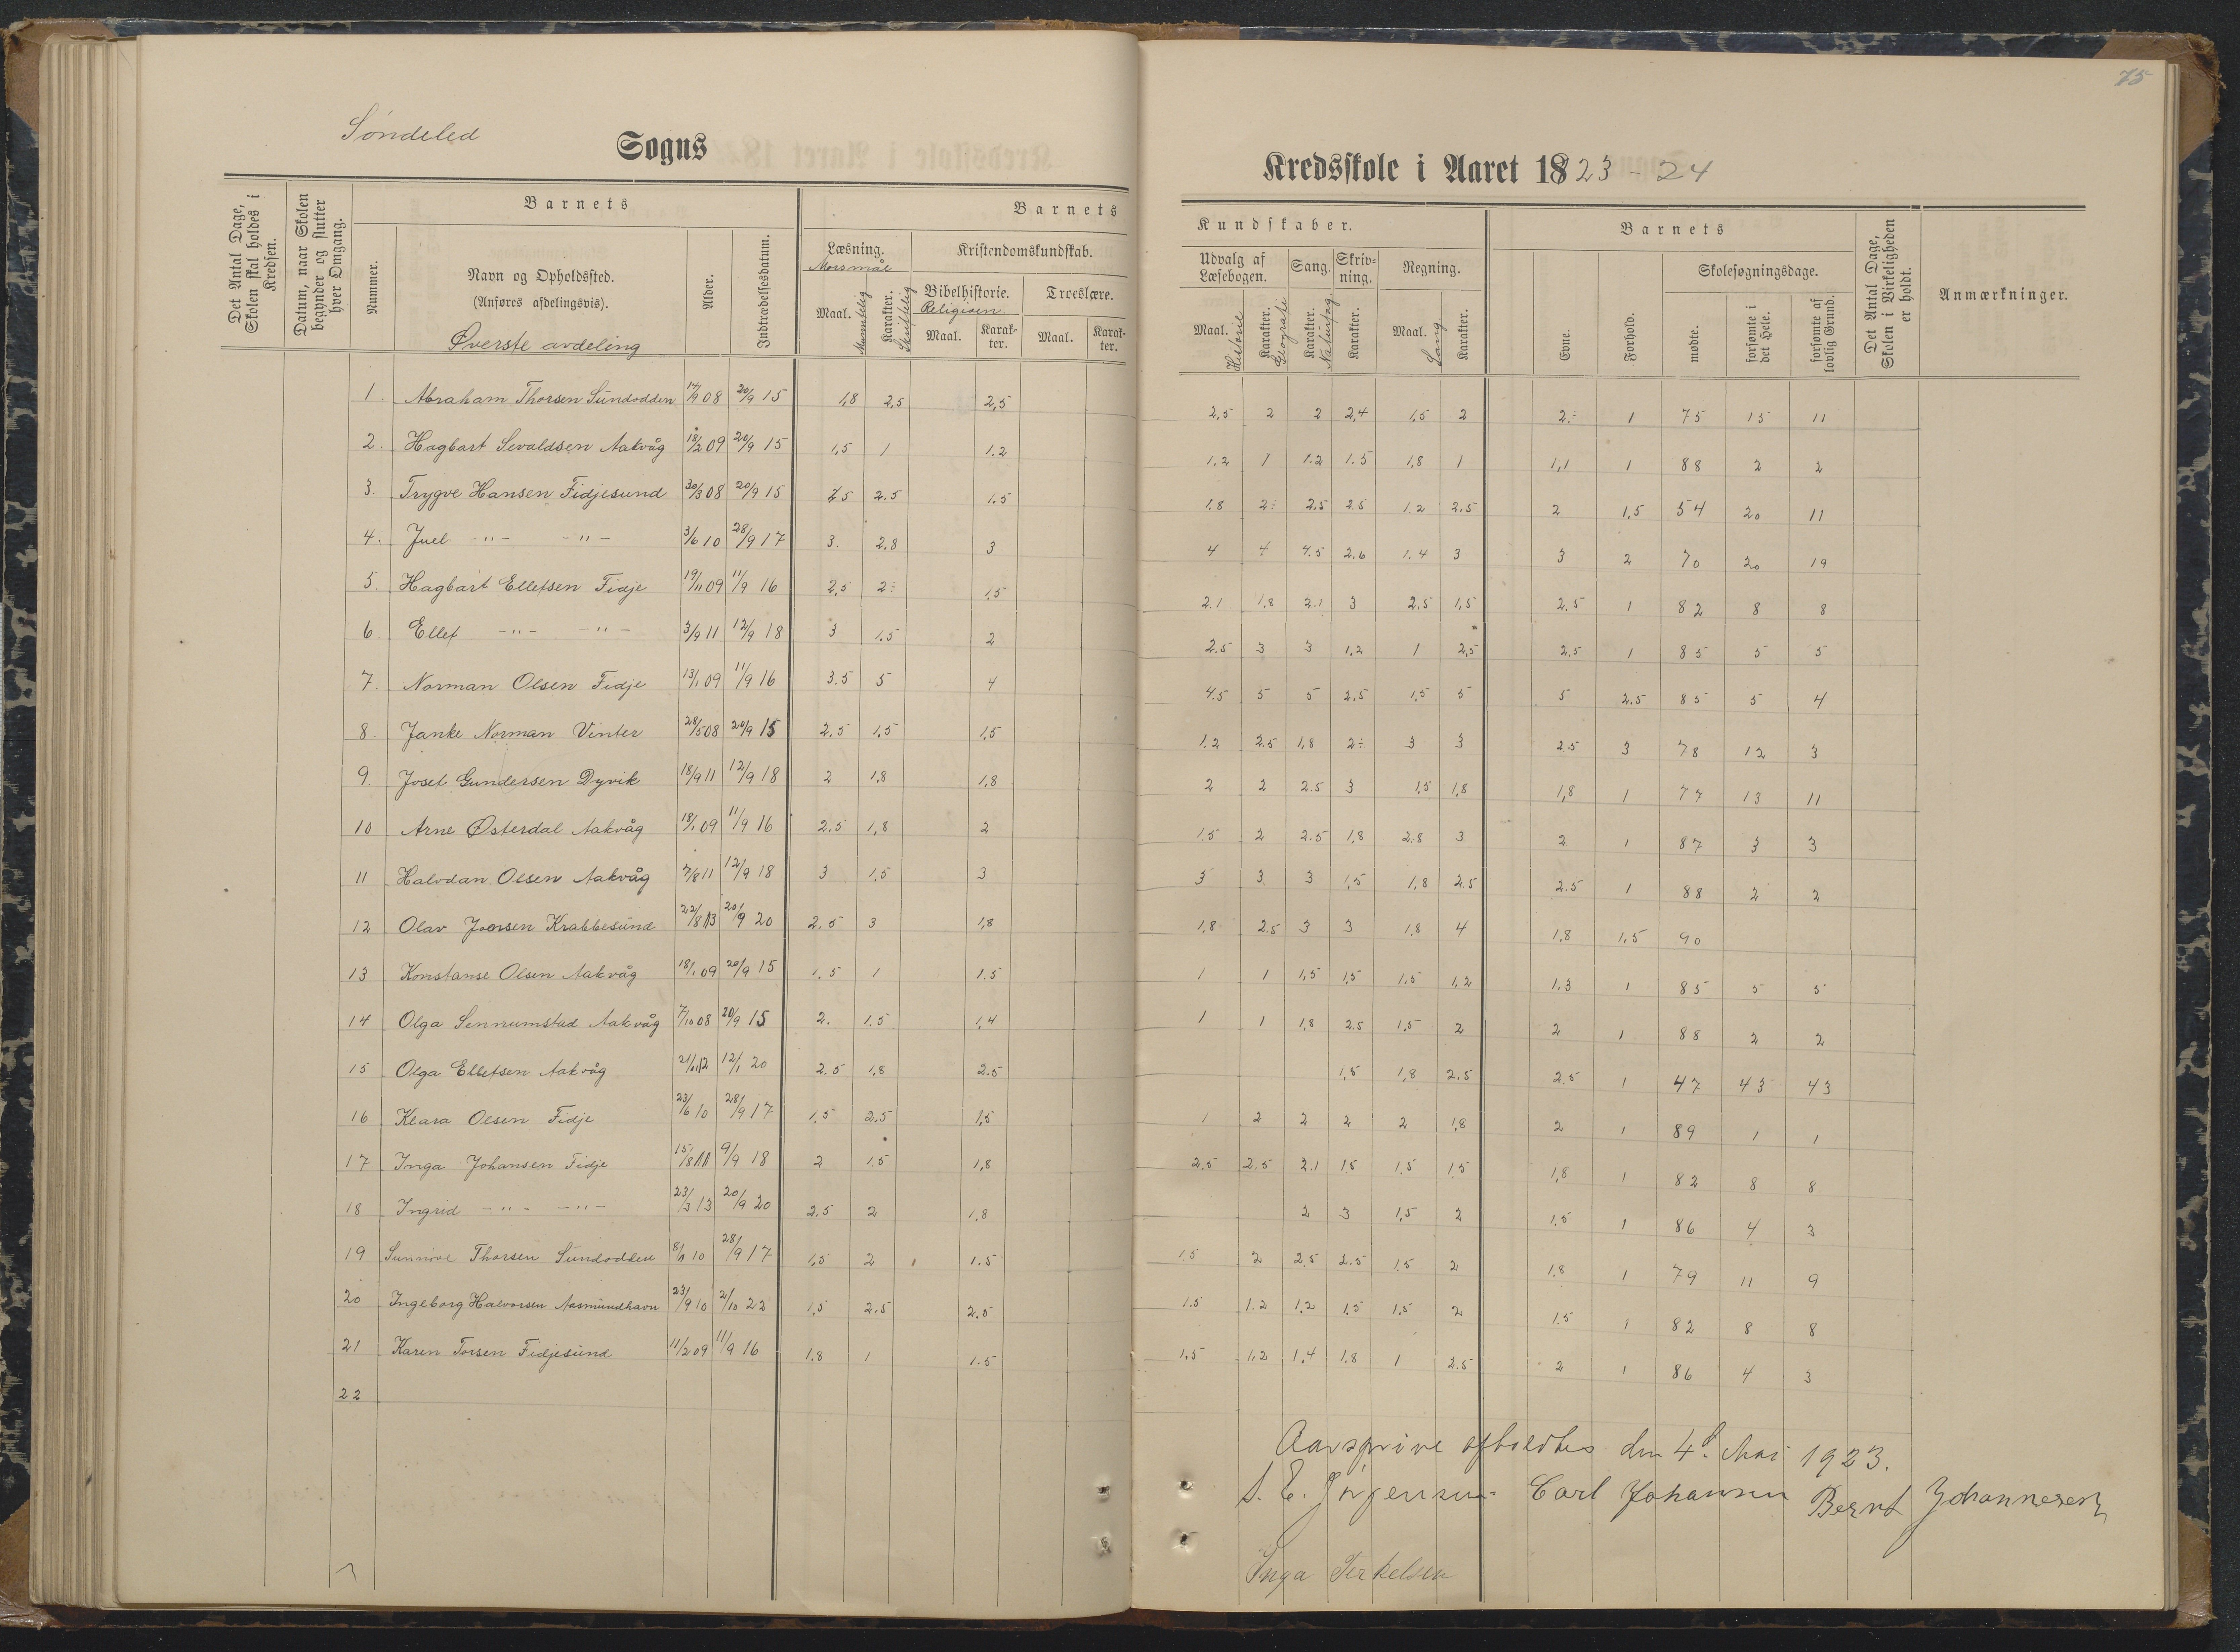 75
Søndeled Sogns
Kredsskole i Aaret 1823-24
Det Antal Dage, Skolen skal holdes i Kredsen.
Datum, naar Skolen begynder og slutter hver Omgang.
Barnets
Nummer.
Navn og Opholdssted.
(Anføres afdelingsvis).
Øverste avdeling
Alder.
Indtrædelsesdatum.
Barnets
Læsning.
Morsmål
Maal. Muntlig
Karakter. Skriftlig
Kristendomskundskab.
Bibelhistorie.
Religion
Maal. Karakter.
Troeslære.
Maal. Karakter.
Kundskaber.
Udvalg af Læsebogen.
Maal. Historie
Karakter. Geografi
Sang.
Karakter. Naturfag
Skrivning.
Karakter.
Regning.
Maal. Sang
Karakter.
Barnets
Evne.
Forhold.
Skolesøgningsdage.
mødte.
forsømte i det Hele.
forsømte af lovlig Grund.
Det Antal Dage, Skolen i Virkeligheden er holdt.
Anmærkninger.
1. Abraham Thorsen Sundodden 14/9 08 20/9 15 1,8 2,5 2,5 2,5 2 2 2,4 1,5 2 2÷ 1 75 15 11
2. Hagbart Sevaldsen Aakvåg 18/2 09 20/9 15 1,5 1 1.2 1,2 1 1.2 1.5 1,8 1 1,1 1 88 2 2
3. Trygve Hansen Fidjesund 30/3 08 20/9 15 2.5 1.5 1.8 2÷ 2.5 2.5 1.2 2.5 2 1,5 54 20 11
4. Juel -"- -"- 3/6 10 28/9 17 3. 2.8 3 4 4 4.5 2.6 1.4 3 3 2 70 20 19
5. Hagbart Ellefsen Fidje 19/11 09 11/9 16 2,5 2÷ 1,5 2.1 1,8 2.1 3 2,5 1,5 2,5 1 82 8 8
6. Ellef -"- -"- 3/9 11 12/9 18 3 1.5 2 2.5 3 3 1,2 1 2,5 2.5 1 85 5 5
7. Norman Olsen Fidje 13/1 09 11/9 16 3.5 5 4 4.5 5 5 2,5 1,5 5 5 2.5 85 5 4
8. Janke Norman Vinter 28/5 08 20/9 15 2,5 1,5 1,5 1.2 2.5 1,8 2÷ 3 3 2.5 3 78 12 3
9. Josef Gundersen Dyvik 18/9 11 12/9 18 2 1,8 1,8 2 2 2.5 3 1,5 1,8 1,8 1 77 13 11
10 Arne Østerdal Aakvåg 18/1 09 11/9 16 2.5 1,8 2 1.5 2 2.5 1,8 2,8 3 2 1 87 3 3
11 Halvdan Olsen Aakvåg 7/8 11 12/9 18 3 1,5 3 3 3 3 1,5 1,8 2.5 2.5 1 88 2 2
12 Olav Joensen Krabbesund 22/8 13 20/9 20 2.5 3 1,8 1,8 2.5 3 3 1,8 4 1,8 1,5 90
13 Konstanse Olsen Aakvåg 18/1 09 20/9 15 1.5 1 1.5 1 1 1,5 1,5 1,5 1,2 1,3 1 85 5 5
14 Olga Sennumstad Aakvåg 7/10 08 20/9 15 2. 1.5 1,4 1 1 1,8 2.5 1,5 2 2 1 88 2 2
15 Olga Ellefsen Aakvåg 12/1 20 2.5 1,8 2.5 1,5 1,8 2.5 2.5 1 47 43 43
16 Klara Olsen Fidje 23/6 10 28/9 17 1.5 2.5 1,5 1 2 2 2 2 1,8 2 1 89 1 1
17 Inga Johansen Fidje 15/8 11 9/9 18 2 1.5 1,8 2.5 2.5 2.1 1.5 1,5 1,5 1,8 1 82 8 8
18 Ingrid -"- -"- 23/3 13 20/9 20 2.5 2 1.8 2 3 1,5 2 1.5 1 86 4 3
19 Sunnive Thorsen Sundodden 10 28/9 17 1,5 2 1.5 1.5 2 2,5 2.5 1.5 2 1,8 1 79 11 9
20 Ingeborg Halvorsen Aasmundhavn 23/9 10 2/10 22 1,5 2.5 2.5 1.5 1.2 1,2 1,5 1,5 2 1.5 1 82 8 8
21 Karen Torsen Fidjesund 11/2 09 11/9 16 1,8 1 1.5 1,5 1,2 1,4 1.8 1 2.5 2 1 86 4 3
22
Aarsprøve afholdtes den 4d. Mai 1923.
S. E. Jørgensen Carl Johansen Bernt Johannesen
Inga Terkelsen